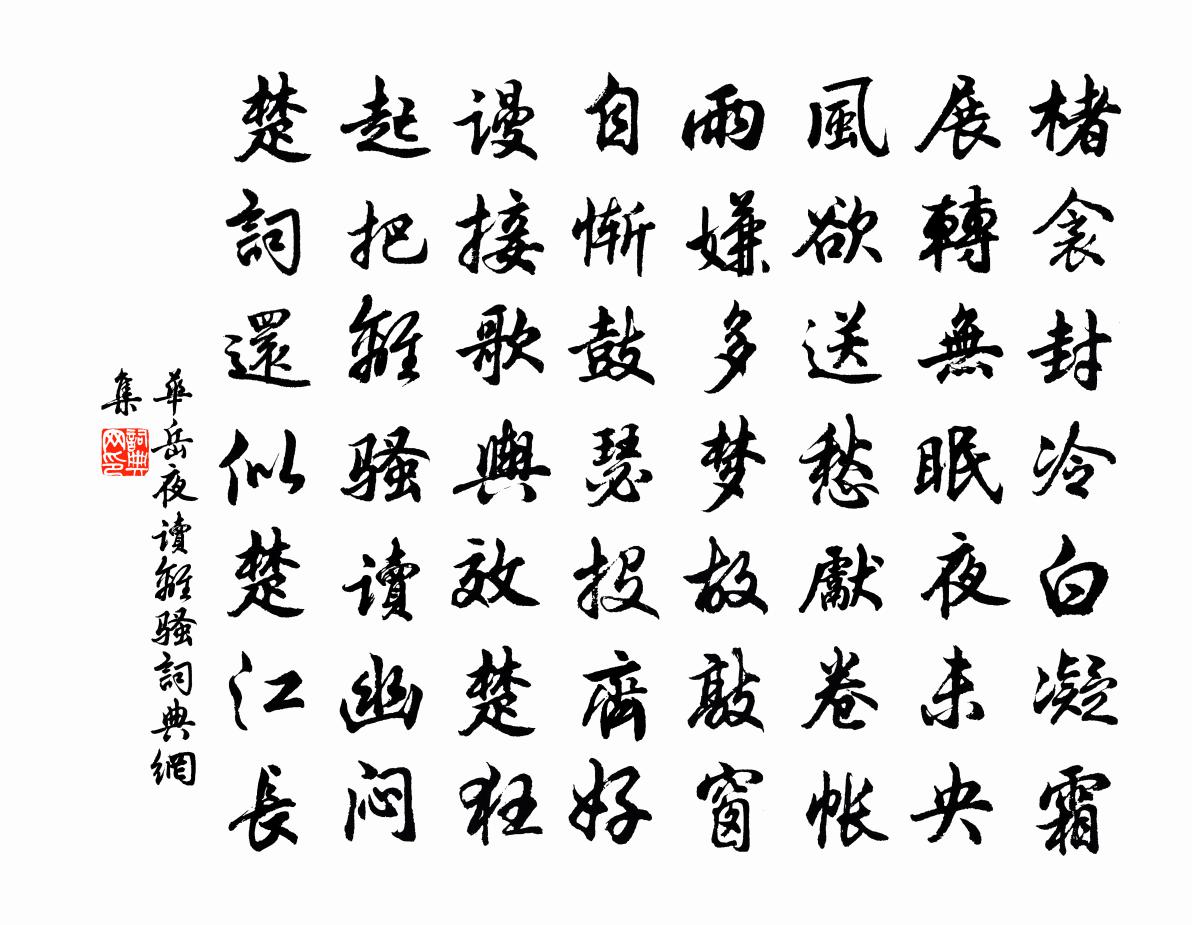 楮衾封冷白凝霜
展轉無眠夜未央
風欲送愁獻卷帐
雨嫌多梦故敲窗
自慚鼓瑟投齊好
謾接歌輿效楚狂
起把離騷讀幽闷
楚詞還似楚江長
華岳夜讀離騷詞典網
集
詞典
网印